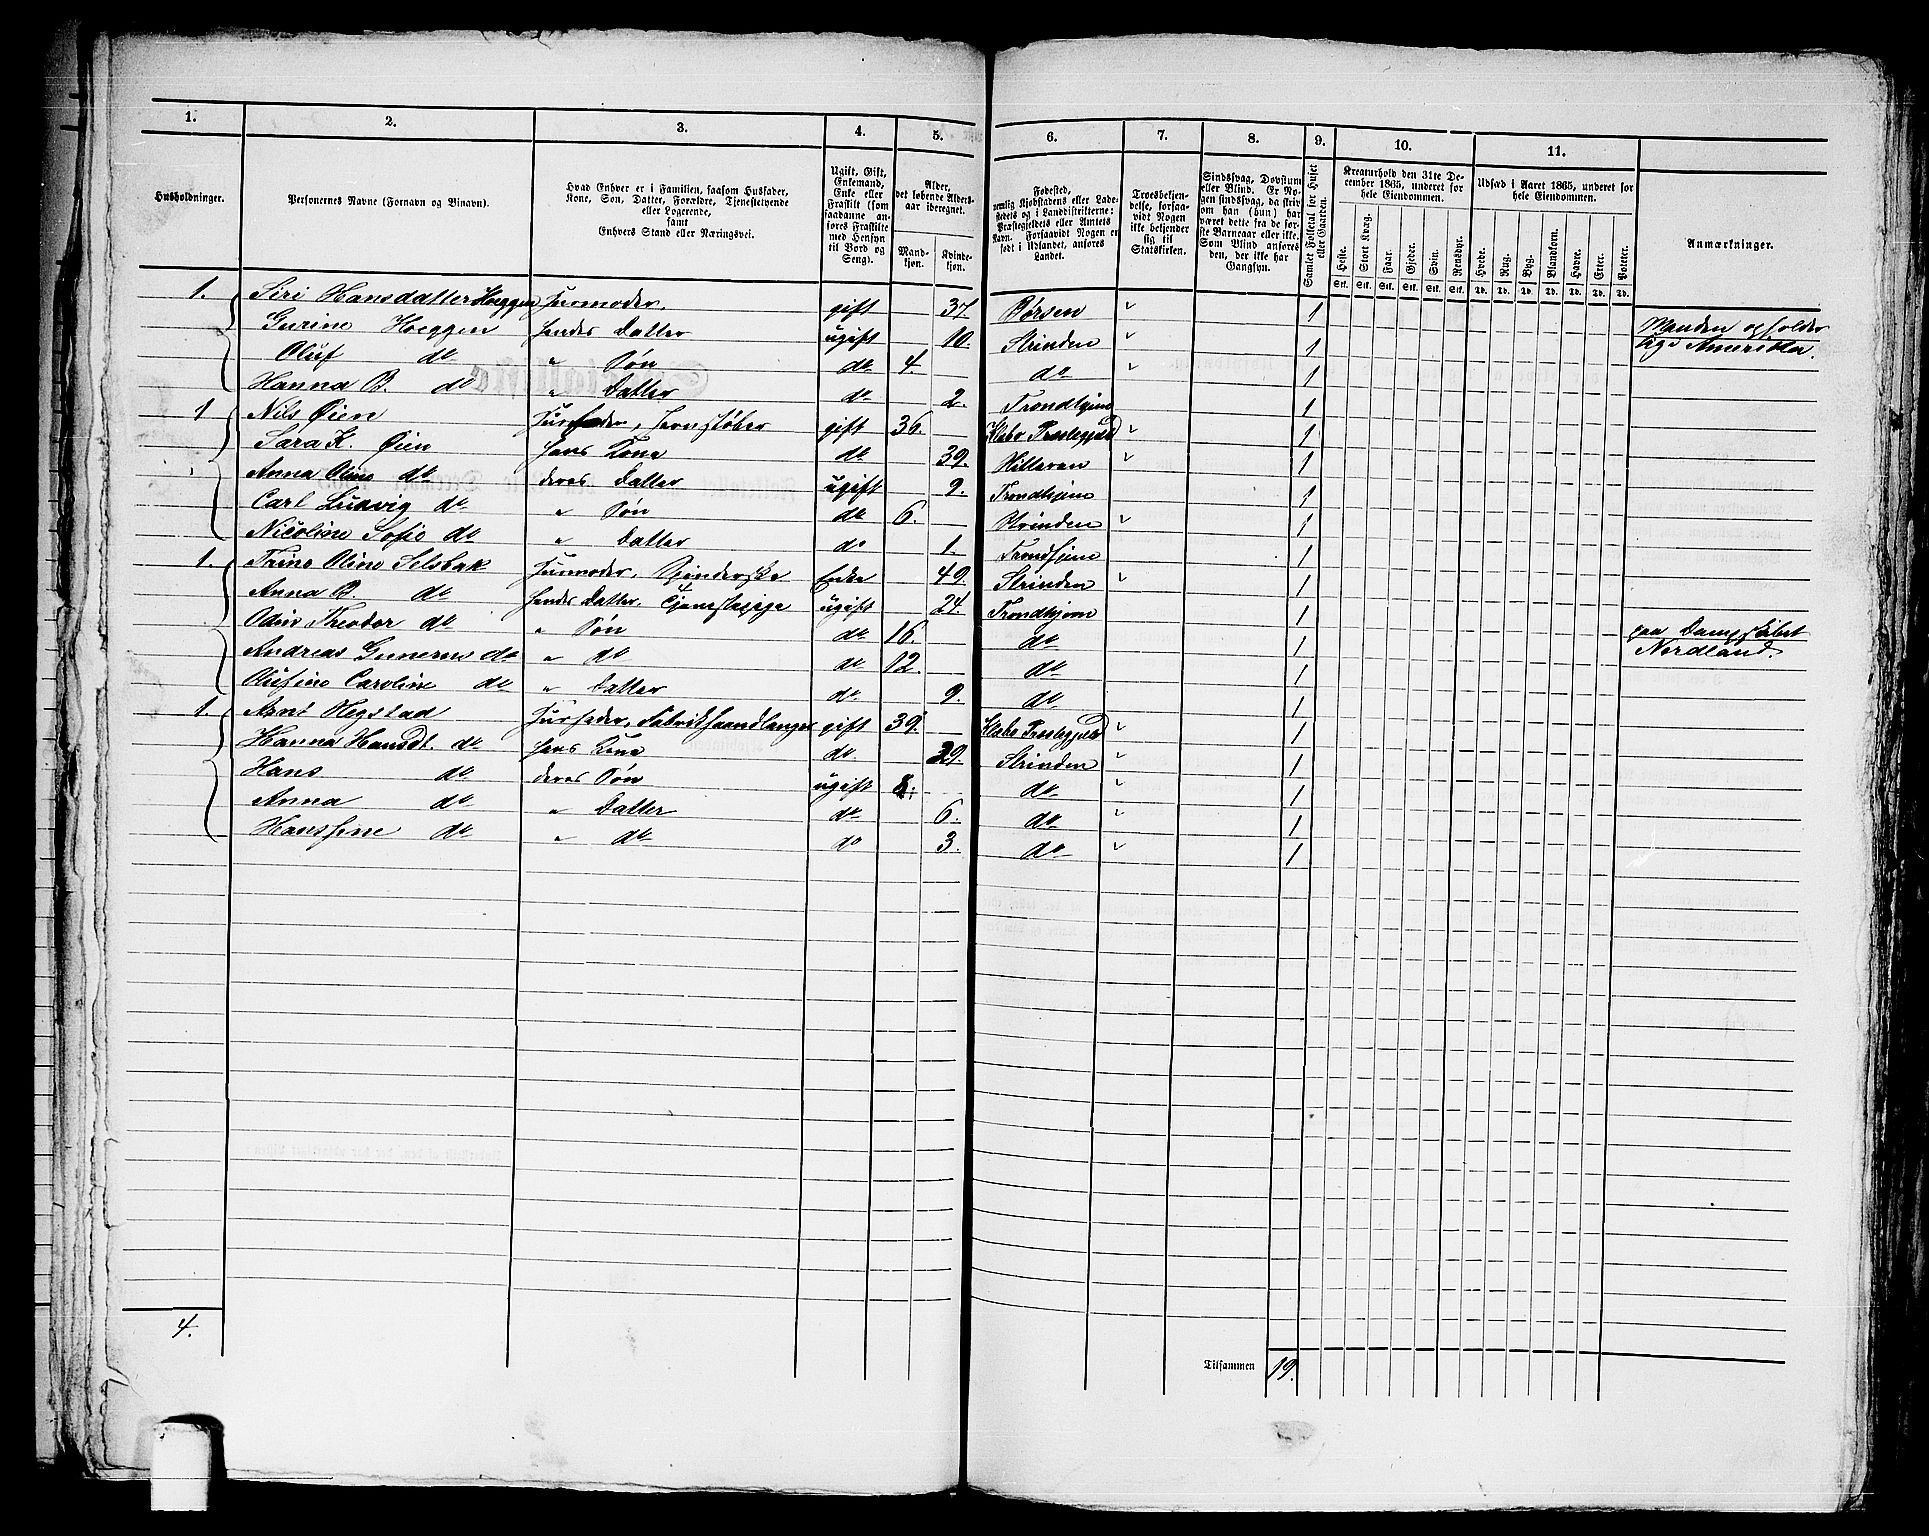 1. 2. 3. 4. 5. 6. 7. 8. 9. 10. 11.
Husholdninger.
Personernes Navne (Fornavn og Binavn).
Hvad Enhver er i Familien, saasom Husfader,
Kone, Søn, Datter, Forældre, Tjenestetyende
eller Logerende,
samt
Enhvers Stand eller Næringsvei.
Ugift, Gift,
Enkemand,
Enke eller
Fraskilt (som
saadanne an-
føres Fraskilte
med Hensyn
til Bord og
Seng).
Alder,
det løbende Alders-
aar iberegnet.
Mand-
kjøn.
Kvinde-
kjøn.
Fødested,
nemlig Kjøbstadens eller Lade-
stedets og i Landdistrikterne:
Præstegjeldets eller Amtets
Navn. Forsaavidt Nogen er
født i Udlandet, anføres
Landet.
Troesbekjen-
delse, forsaa-
vidt Nogen
ikke bekjender
sig til
Statskirken.
Sindssvag, Døvstum
eller Blind. Er No-
gen sindssvag, da skriv
om han (hun) har
været dette fra de før-
ste Barneaar eller ikke.
Som Blind anføres
den, der ikke har
Gangsyn.
Samlet Folketal for Huset
eller Gaarden.
Kreaturhold den 31te De-
cember 1865, underet for
hele Eiendommen.
Heste. Stort Kvæg. Faar. Gjeder. Svin. Rensdyr.
Stk. Stk. Stk. Stk. Stk. Stk.
Udsæd i Aaret 1865, underet for
hele Eiendommen.
Hvede. Rug. Byg. Blandkorn. Havre. Erter. Poteter.
Td. Td. Td. Td. Td. Td. Td.
Anmærkninger.
1. Siri Hansdatter Hoeggen Husmoder, gift 37 Børsen " 1
Gurine Hoeggen Hendes Datter ugift 10. Strinden " 1 Manden opholder
Oluf do " Søn do 4. do 1 sig i Amerika.
Hanna B. do " Datter do 2. Trondhjem 1
1 Nils Øien Husfader, Jernstøber gift 36. Klæbo Præstegjeld " 1
Sara K. Øien Hans Kone do 39. Hitteren " 1
Anna Oline do deres Datter ugift 9. Trondhjem 1
Carl Ludvig do " Søn do 6. Strinden " 1
Nicoline Sofie do " Datter do 1. Trondhjem 1
1. Trine Oline Selsbak Husmoder, Spinderske Enke 49. Strinden " 1
Anna B. do Hendes Datter, Tjenestepige ugift 24. Trondhjem 1
Odin Theodor do " Søn do 16. do 1 paa Dampskibet
Andreas Gunerus do " do do 12. do 1 Nordland.
Olufine Caroline do " Datter do 9. do 1
1. Arnt Hegstad Husfader, Fabrikhaandlanger gift 39. Klæbo Præstegjeld " 1
Hanna Hansdt. do Hans Kone do. 29. Strinden " 1
Hans do deres Søn ugift 8. do " 1
Anna do " Datter do 6. do " 1
Hansine do " do do 3. do " 1
4.
Tilsammen 19.